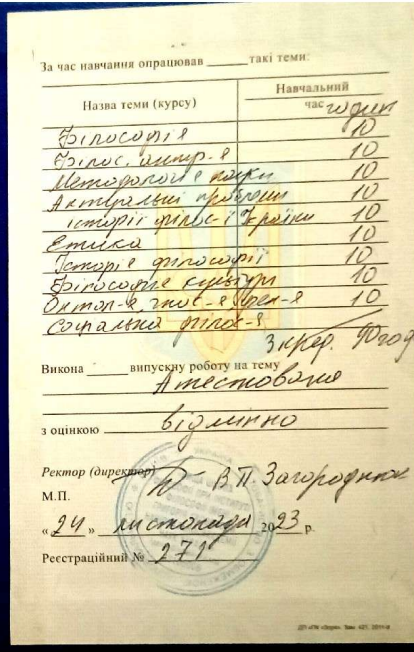 За час навчання опрацював ____ такі теми:
Назва теми (курсу) Навчальний
час годин
Філософія 10
Філос. антр-я 10
Методологія науки 10
Актуальні проблеми 10
історії філос-ї України 10
Етика 10
Історія філософії 10
Філософія культури 10
Онтол-я, гнос-я, фен-я 10
Соціальна філос-я
3 кред. 90 год
Викона____ випускну роботу на тему
Атестована
з оцінкою відмінно
Ректор (директор) В.П. Загороднюк
М.П.
«24» листопада 2023 р.
Реєстраційний № 271